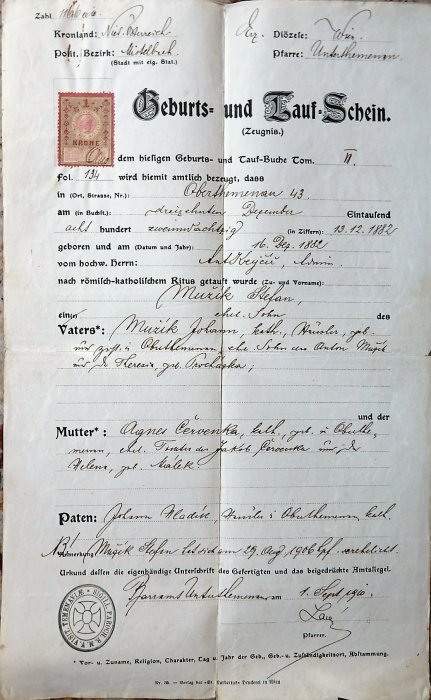 Zahl
Kronland: Nied. Österreich Erz Diözese: Wien
Polit. Bezirk: Mistelbach Pfarre: Unterthemenau
(Stadt mit eig. Stat.)
1
KRONE
Geburts- und Tauf-Schein.
(Zeugnis.)
Aus dem hiesigen Geburts- und Tauf-Buche Tom. II
Fol. 134 wird hiemit amtlich bezeugt, dass
in (Ort, Strasse, Nr.): Oberthemenau 43.
am (in Buchst.) dreizehnten Dezember Eintausend
acht hundert zweiundachtzig (in Ziffern): 13. 12. 1882
geboren und am (Datum und Jahr): 16. Dez. 1882
vom hochw. Herrn: Ant. Krejčíř, Admin.
nach römisch-katholischem Ritus getauft wurde (Zu- und Vorname):
Mužik Stefan,
ein(e) ehel. Sohn des
Vaters*: Mužik Johann, kath., Häusler, geb.
und zust. in Oberthemenau, ehe. Sohn des Anton Mužik
und der Theresia, geb. Prochaska;
und der
Mutter*: Agnes Červenka, kath., geb. in Oberthe-
menau, ehe. Tochter des Jakob Červenka und der
Helena, geb. Malek.
Paten: Johann Häusler in Oberthemenau, kath.
Anmerkung Mužik Stefan hat sich am 29. Aug. 1906 verehelicht.
Urkund dessen die eigenhändige Unterschrift des Gefertigten und das beigedrückte Amtssiegel.
Pfarramt Unterthemenau am 1. Sept. 1910.
Pfarrer.
* Vor- u. Zuname, Religion, Charakter, Tag u. Jahr der Geb., Geb.- u. Zuständigkeitsort, Abstammung.
Nr. 38. — Verlag der „St. Norbertus"-Druckerei in Wien